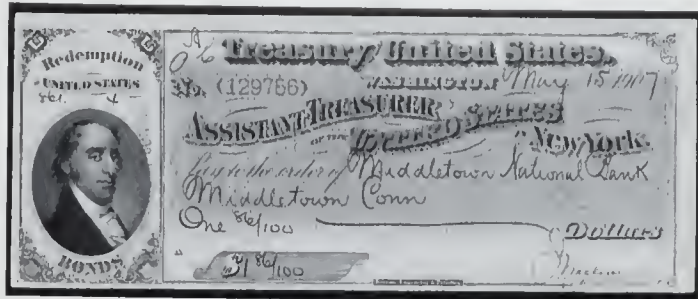 Redemption
UNITED STATES
4
BONDS
Treasury United States.
No. (129786)
WASHINGTON May 15 1917
ASSISTANT TREASURER
OF THE UNITED STATES
New York.
Pay to the order of Middletown National Bank
Middletown Conn
One 86/100 Dollars
$1 86/100